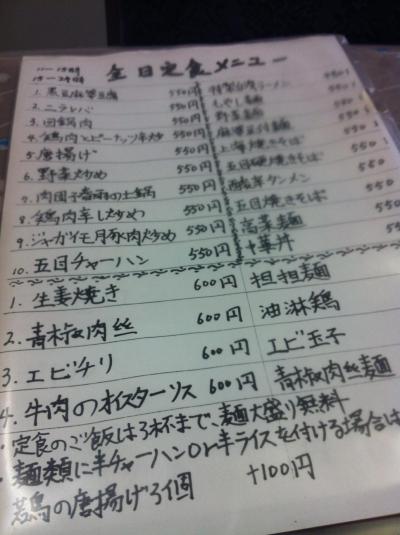 全日定食メニュー
1. 黒豆麻婆豆腐 550円 特製台湾ラーメン 550円
2. ニラレバ 550円 もやし麺
3. 回鍋肉 550円 野菜麺 550
4. 鶏肉とピーナッツ炒め 550円 麻婆豆腐麺 550
5. 唐揚げ 550円 上海焼きそば 550
6. 野菜炒め 550円 五目硬焼きそば 550
7. 肉団子春雨の土鍋 550円 タンメン 550
8. 鶏肉辛し炒め 550円 五目焼きそば 550
9. ジャガイモ豚肉炒め 550円 高菜麺 550
10. 五目チャーハン 550円 中華丼 55
1. 生姜焼き 600円 担担麺
2. 青椒肉丝 600円 油淋鶏
3. エビチリ 600円 エビ玉子
4. 牛肉のオイスターソース 600円 青椒肉丝麺
・定食のご飯は3杯まで、麺大盛り無料
・麺類に半チャーハンor半ライスを付ける場合は
+100円
若鳥の唐揚げ3個